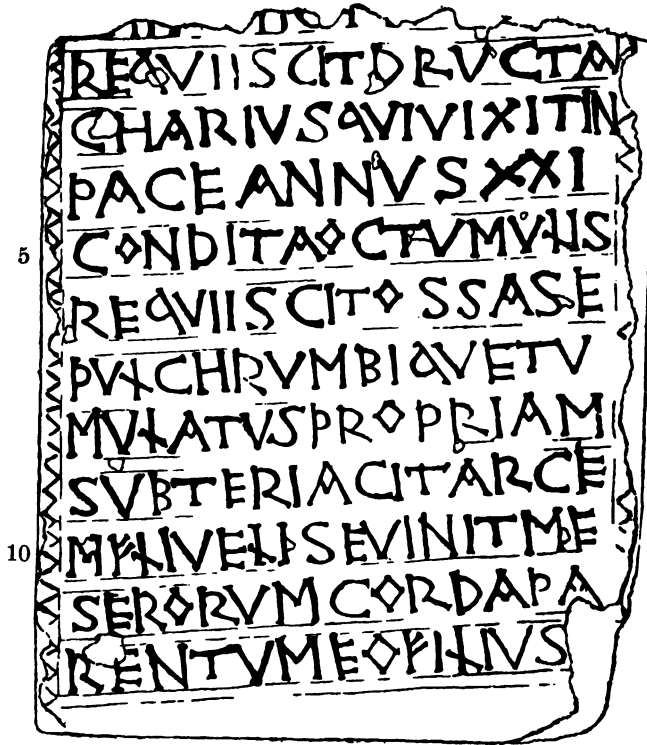 REQVIISCITDRVCTA
CHARIVSQVIVIXITIN
PACEANNVSXXI
5 CONDITAOCTVMVLIS
REQVIISCITOSSASE
PVLCHRVMBIQVETV
MVLATVSPROPRIAM
SVBTERIACITARCE
10
SERORVMCORDAPA
RENTVMEOFILIVS